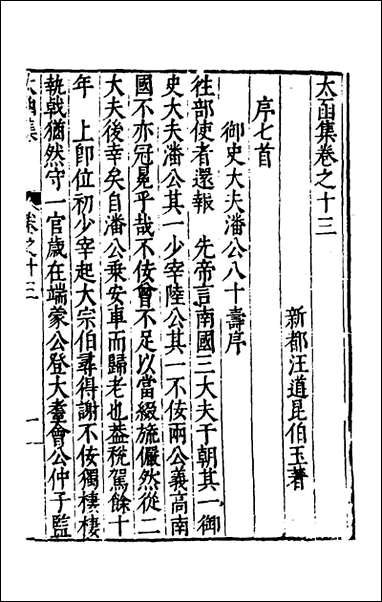 太函集卷之十三
新都汪道昆伯玉著
序七首
御史大夫潘公八十壽序
往部使者還報　先帝言南國三大夫于朝其一御
史大夫潘公其一少宰陸公其一不佞兩公義高南
國不亦冠冕乎哉不佞曾不足以當綴旒儼然從二
大夫後幸矣自潘公乘安車而歸老也葢稅駕餘十
年　上卽位初少宰起大宗伯尋得謝不佞獨棲棲
執戟猶然守一官歲在端蒙公登大耋會公仲子監
太函集　卷之十三　一